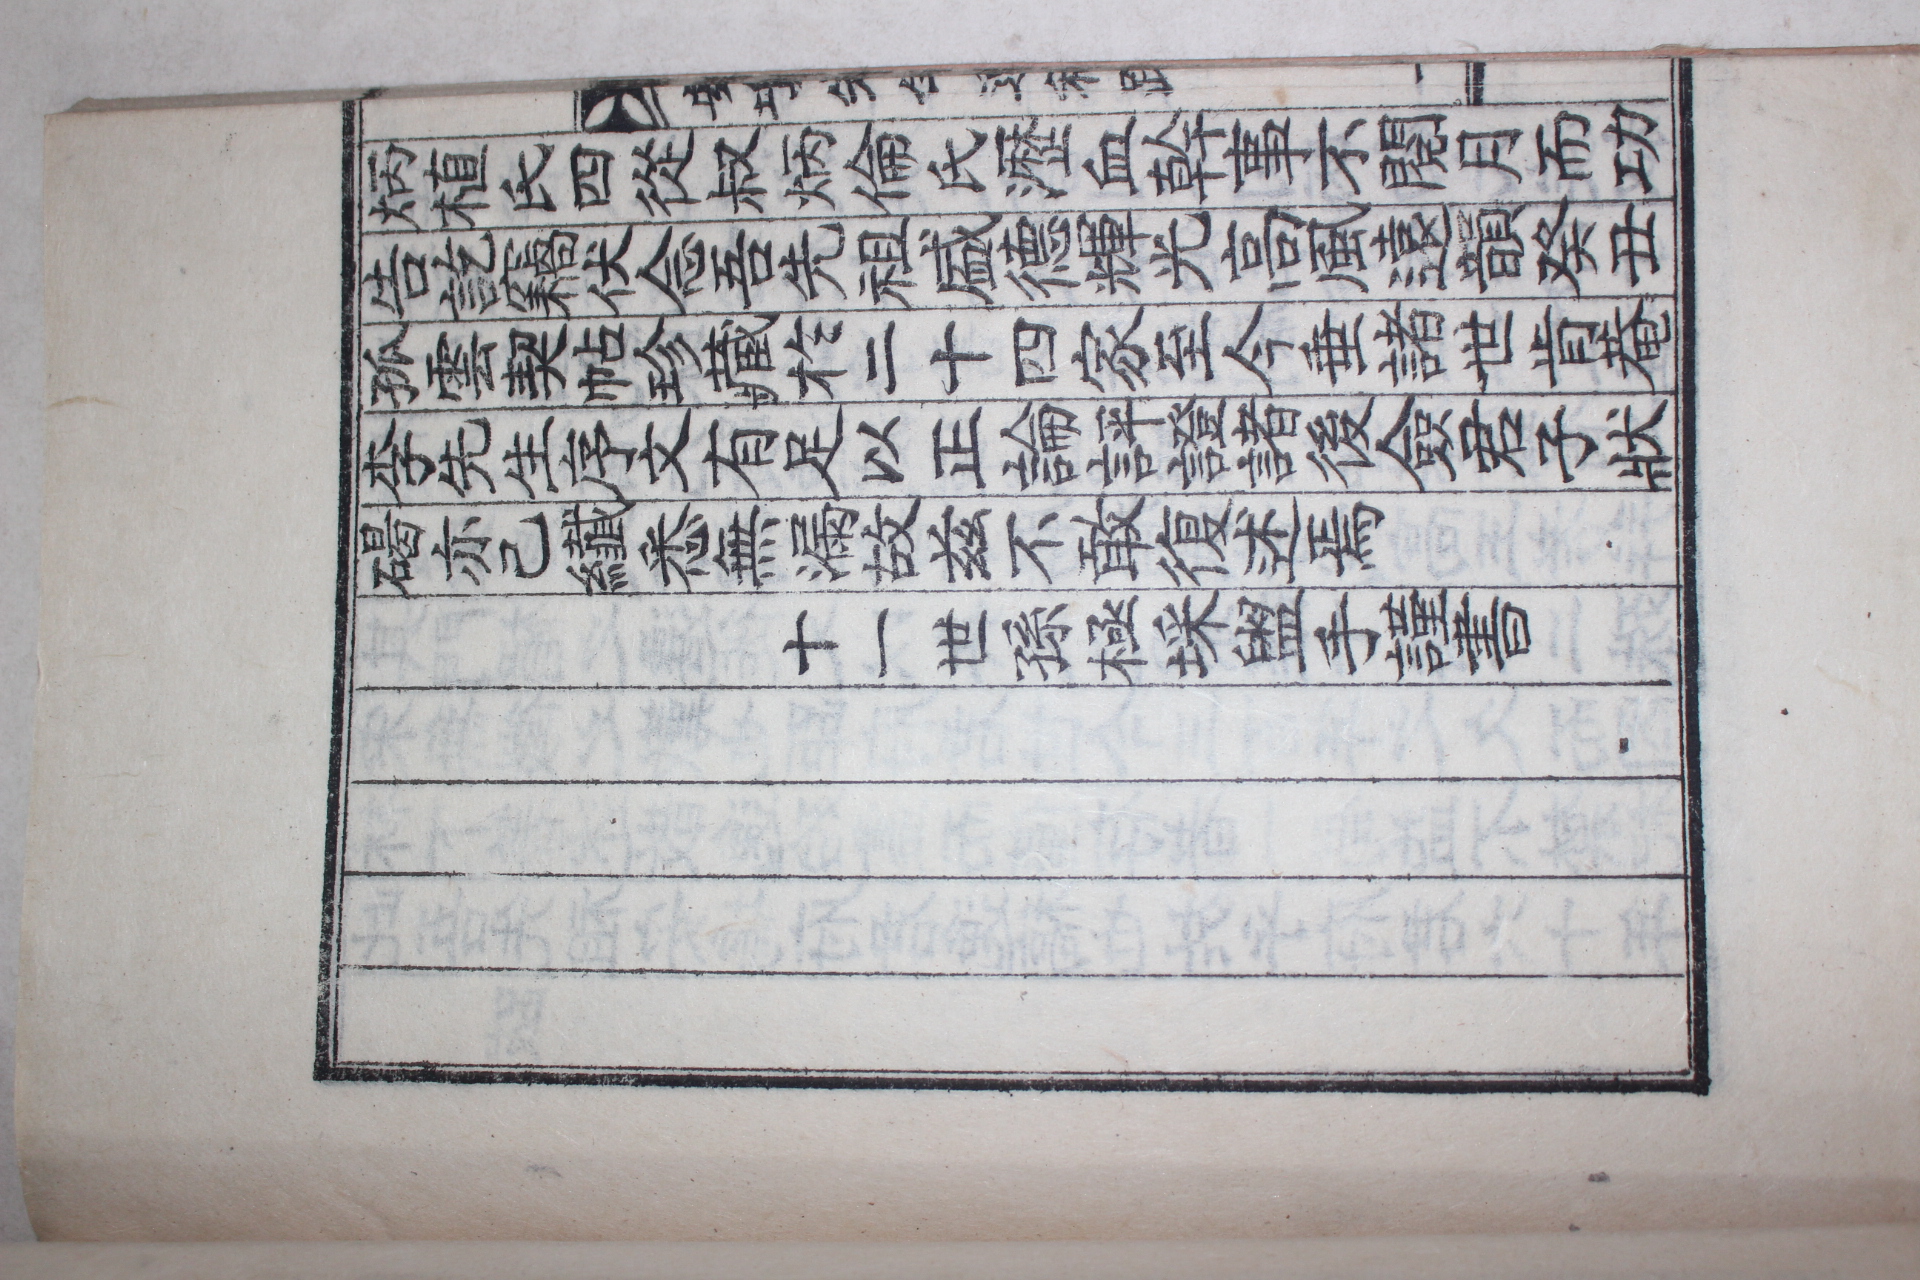 炳植氏四從叔炳倫氏瀝血幹事不閱月而功
告訖竊伏念吾先祖盛德輝光高風遠韻癸丑
孤雲契帖珍藏於二十四家至今垂諸世肯菴
李先生序文有足以正論評證諸後僉君子狀
碣亦己纖悉無漏故茲不敢復述焉
十一世孫極埰盥手謹書